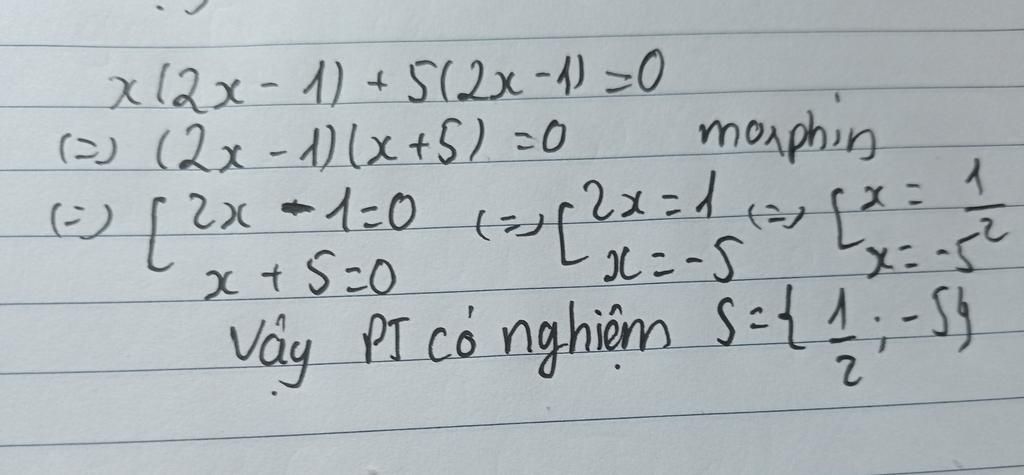 x(2x - 1) + 5(2x - 1) = 0
(=) (2x - 1)(x + 5) = 0 morphin
(=) [ 2x - 1 = 0 (=) [ 2x = 1 (=) [ x = 1/2
x + 5 = 0 x = -5 x = -5
Vậy PT có nghiệm S = { 1/2 ; -5}